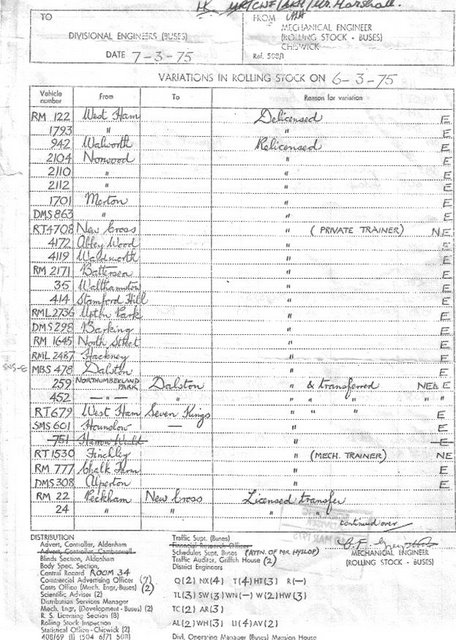 TO
DIVISIONAL ENGINEERS (BUSES)
DATE 7-3-75
FROM
MECHANICAL ENGINEER
(ROLLING STOCK - BUSES)
CHISWICK
Ref. 508/1
VARIATIONS IN ROLLING STOCK ON 6-3-75
Vehicle number From To Reason for variation
RM 122 West Ham Delicensed E
1793 " " E
942 Walworth Relicensed E
2104 Norwood " E
2110 " " E
2112 " " E
1701 Merton " E
DMS 863 " " E
RT 4708 New Cross " (PRIVATE TRAINER) NE
4172 Abbey Wood " E
4119 Wandsworth " E
RM 2171 Battersea " E
35 Walthamstow " E
414 Stamford Hill " E
RML 2736 Upton Park " E
DMS 298 Barking " E
RM 1645 North Street " E
RML 2487 Hackney " E
MBS 478 Dalston " E
259 NORTHUMBERLAND PARK Dalston " & transferred NE & E
452 — " — " " " " "
RT 679 West Ham Seven Kings " " " E
SMS 601 Hounslow — " E
751 Harrow Weald E
RT 1530 Finchley " (MECH. TRAINER) NE
RM 777 Chalk Farm " E
DMS 308 Alperton " E
RM 22 Peckham New Cross Licensed transfer E
24 " " " E
continued over
DISTRIBUTION
Advert. Controller, Aldenham
Advert. Controller, Camberwell
Blinds Section, Aldenham
Body Spec. Section,
Control Record ROOM 34
Commercial Advertising Officer (7)
Costs Office (Mech. Engr. Buses) (2)
Scientific Adviser (2)
Distribution Services Manager
Mech. Engr. (Development - Buses) (2)
R. S. Licensing Section (8)
Rolling Stock Inspection
Statistical Office - Chiswick (2)
Traffic Supt. (Buses)
Schedules Supt. (Buses) (ATTN. OF MR HYSLOP)
Traffic Auditor, Griffith House (2)
District Engineers
Q (2) NX (4) T (4) HT (3) R (—)
TL (3) SW (3) WN (—) W (2) HW (3)
TC (2) AR (3)
AL (2) WH (3) U (4) AV (2)
Divl. Operating Manager (Buses) Mansion House
MECHANICAL ENGINEER
(ROLLING STOCK - BUSES)